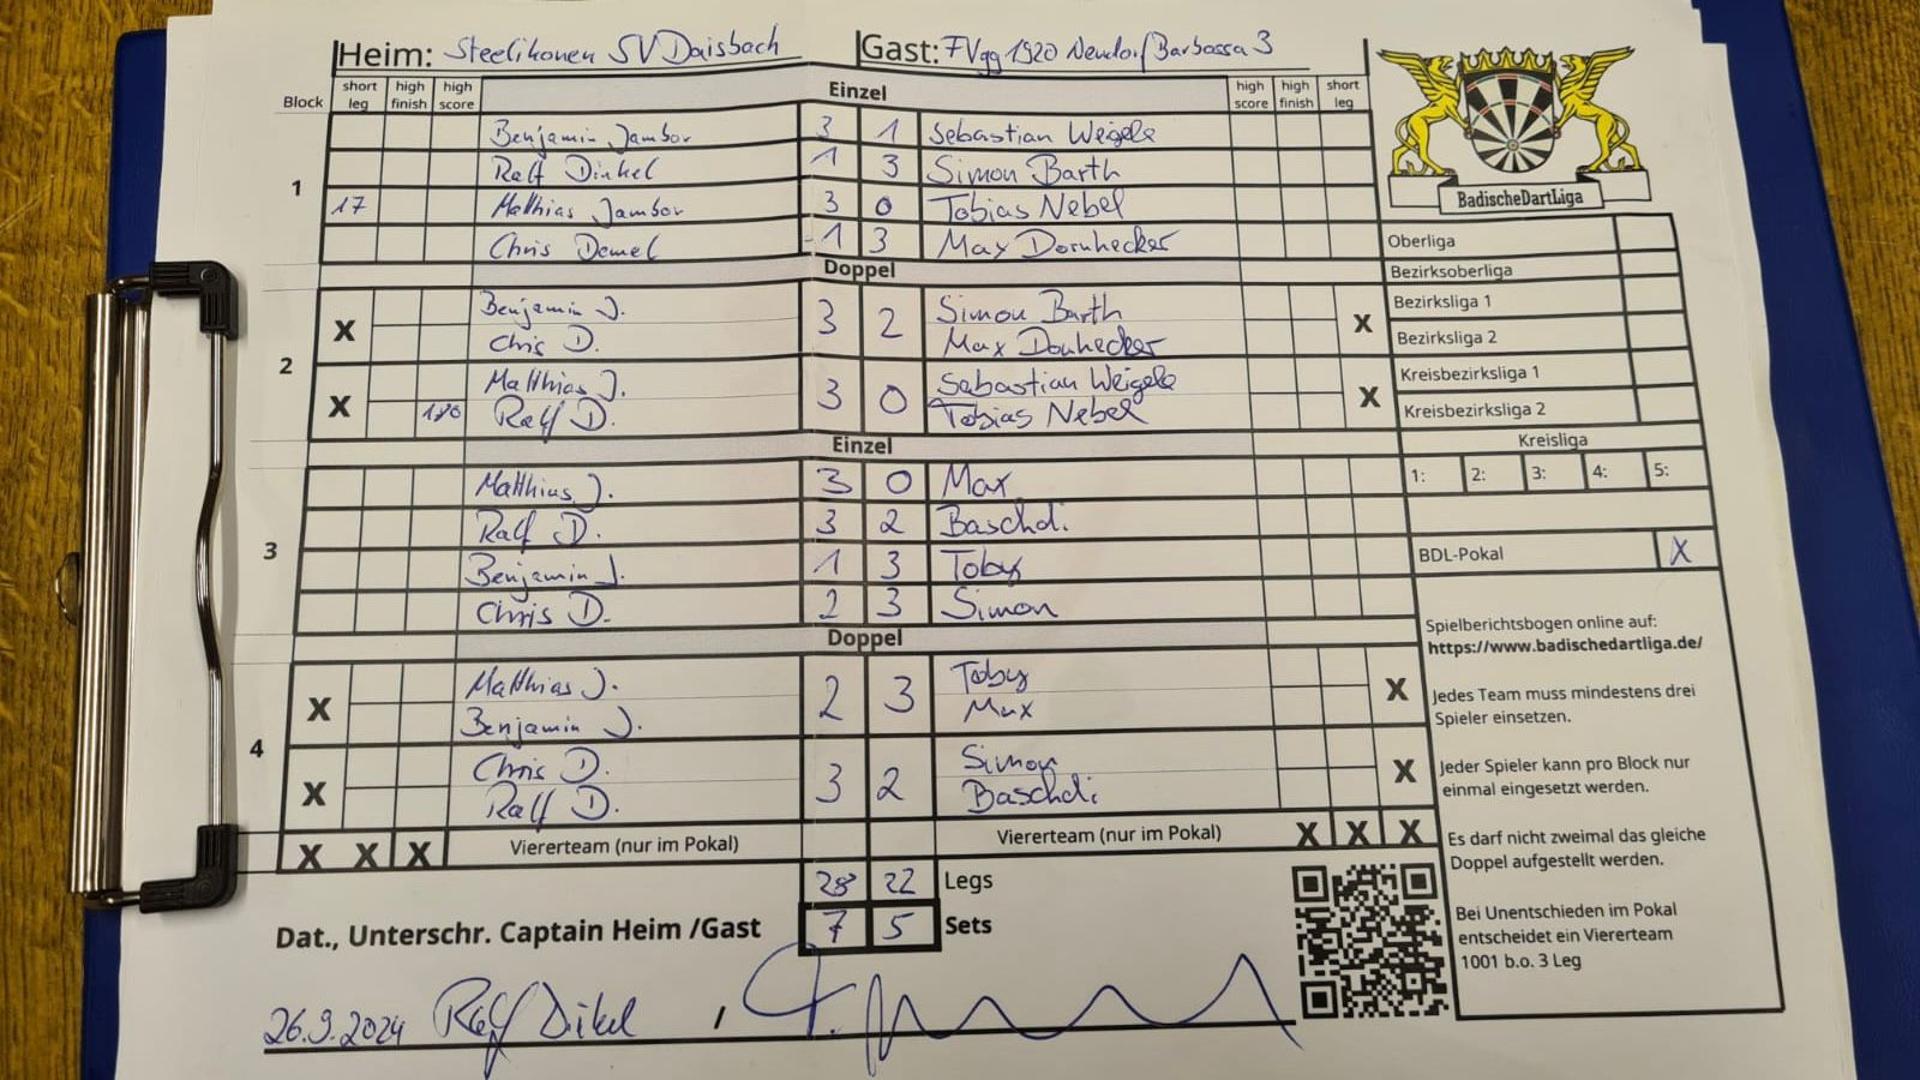 Heim: Steelikonen SV Daisbach Gast: FVgg 1920 Neudorf/Barbossa 3
Block short leg high finish high score Einzel high score high finish short leg
1
Benjamin Jambor 3 1 Sebastian Weigele
Ralf Dinkel 1 3 Simon Barth
17 Matthias Jambor 3 0 Tobias Nebel
Chris Demel 1 3 Max Dornhecker
Doppel
2
X Benjamin J. 3 2 Simon Barth X
Chris D. Max Dornhecker
X Matthias J. 3 0 Sebastian Weigele X
180 Ralf D. Tobias Nebel
Einzel
3
Matthias J. 3 0 Max
Ralf D. 3 2 Baschdi
Benjamin J. 1 3 Toby
Chris D. 2 3 Simon
Doppel
4
X Matthias J. 2 3 Toby X
Benjamin J. Max
X Chris D. 3 2 Simon X
Ralf D. Baschdi
X X X Viererteam (nur im Pokal) Viererteam (nur im Pokal) X X X
28 22 Legs
7 5 Sets
Dat., Unterschr. Captain Heim /Gast
26.9.2024 Ralf Dikel /
BadischeDartLiga
Oberliga
Bezirksoberliga
Bezirksliga 1
Bezirksliga 2
Kreisbezirksliga 1
Kreisbezirksliga 2
Kreisliga
1: 2: 3: 4: 5:
BDL-Pokal X
Spielberichtsbogen online auf:
https://www.badischedartliga.de/
Jedes Team muss mindestens drei
Spieler einsetzen.
Jeder Spieler kann pro Block nur
einmal eingesetzt werden.
Es darf nicht zweimal das gleiche
Doppel aufgestellt werden.
Bei Unentschieden im Pokal
entscheidet ein Viererteam
1001 b.o. 3 Leg